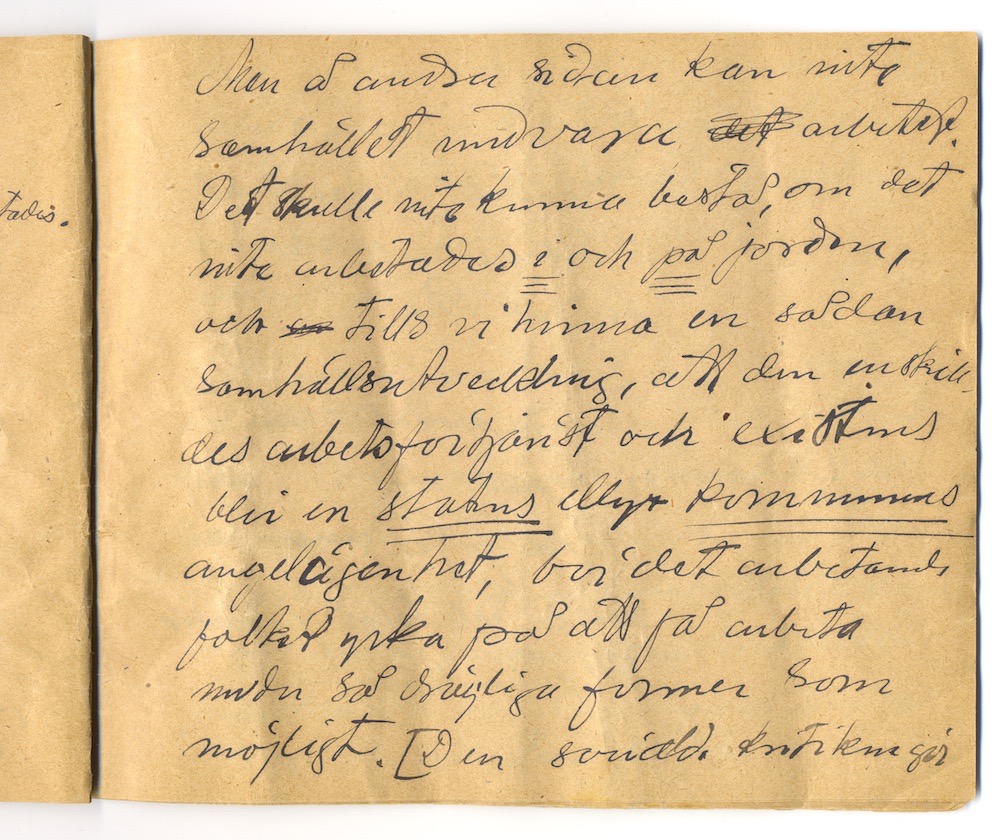 tades.
Men å andra sidan kan inte
samhället undvara det arbetet.
Det skulle inte kunna bestå, om det
inte arbetades i och på jorden,
och tills vi hinna en sådan
samhällsutveckling, att den enskil-
des arbetsförtjänst och existens
blir en statens eller kommunens
angelägenhet, bör det arbetande
folket yrka på att få arbeta
under så drägliga former som
möjligt. [Den kritiken gör